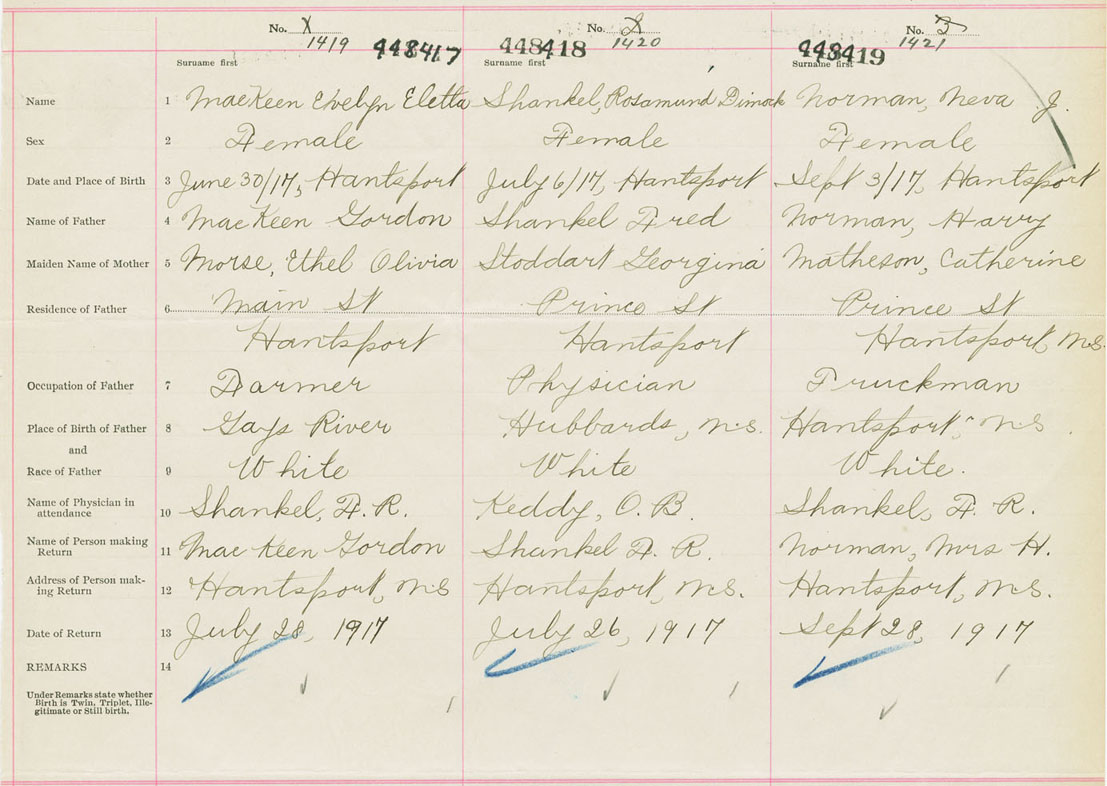 No. X No. 2 No. 3
1419 448417 448418 1420 448419 1421
Surname first Surname first Surname first
Name 1 MacKeen Evelyn Eletta Shankel, Rosamund Dimock Norman, Neva J.
Sex 2 Female Female Female
Date and Place of Birth 3 June 30/17, Hantsport July 6/17, Hantsport Sept 3/17, Hantsport
Name of Father 4 MacKeen Gordon Shankel Fred Norman, Harry
Maiden Name of Mother 5 Morse, Ethel Olivia Stoddart Georgina Matheson, Catherine
Residence of Father 6 Main St Prince St Prince St
Hantsport Hantsport Hantsport, N.S.
Occupation of Father 7 Farmer Physician Truckman
Place of Birth of Father 8 Gays River Hubbards, N.S. Hantsport, N.S.
and
Race of Father 9 White White White.
Name of Physician in
attendance 10 Shankel, F. R. Keddy, O. B. Shankel, F. R.
Name of Person making
Return 11 MacKeen Gordon Shankel F. R. Norman, Mrs H.
Address of Person mak-
ing Return 12 Hantsport, N.S Hantsport, N.S. Hantsport, N.S.
Date of Return 13 July 28, 1917 July 26, 1917 Sept 28, 1917
REMARKS 14
Under Remarks state whether
Birth is Twin, Triplet, Ille-
gitimate or Still birth.